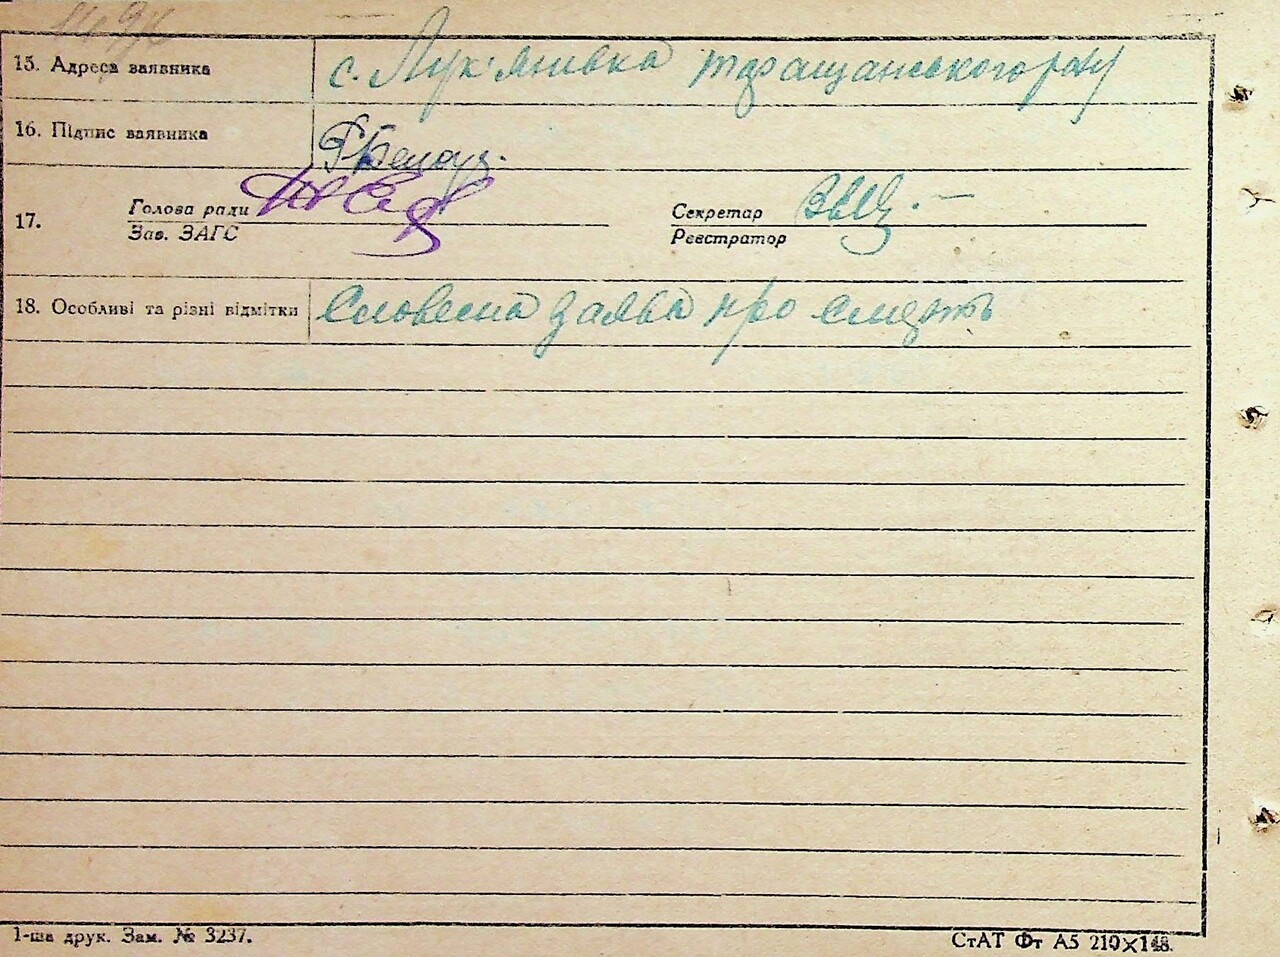 15. Адреса заявника с. Лук'янивка таращанського рану
16. Підпис заявника
17. Голова ради Секретар
Зав. ЗАГС Реєстратор
18. Особливі та різні відмітки Словесна заява про смерть
1-ша друк. Зам. № 3237. СтАТ Фт А5 210×148.